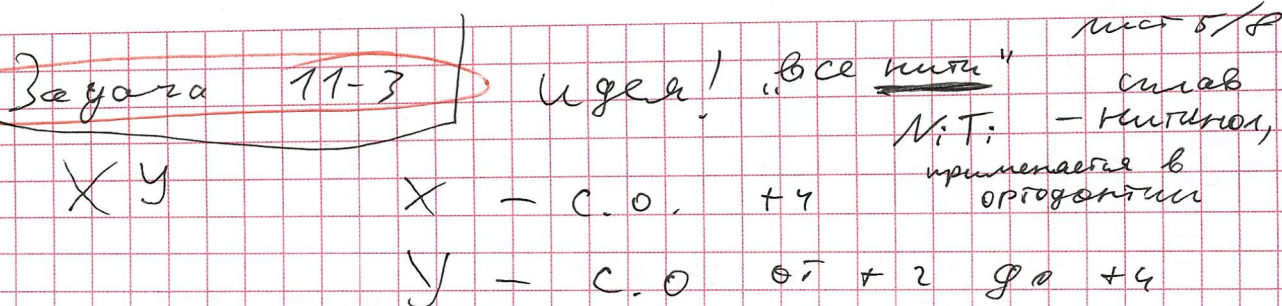 лист 5/8
Задача 11-3 Идея! „все нити"
сплав
NiTi - нитинол,
применяется в
ортодонтии
XY X - с.о. +4
Y - с.о от +2 до +4